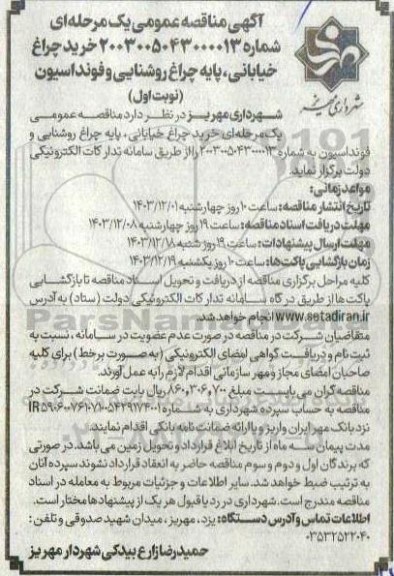 آگهی مناقصه عمومی یک مرحله‌ای
شماره ۲۰۰۳۰۰۵۰۴۳۰۰۰۰۱۳ خرید چراغ
خیابانی، پایه چراغ روشنایی و فونداسیون
(نوبت اول)
شهرداری مهریز
شهرداری مهریز در نظر دارد مناقصه عمومی
یک مرحله‌ای خرید چراغ خیابانی، پایه چراغ روشنایی و
فونداسیون به شماره ۲۰۰۳۰۰۵۰۴۳۰۰۰۰۱۳ را از طریق سامانه تدارکات الکترونیکی
دولت برگزار نماید.
مواعد زمانی:
تاریخ انتشار مناقصه: ساعت ۱۰ روز چهارشنبه ۱۴۰۳/۱۲/۰۱
مهلت دریافت اسناد مناقصه: ساعت ۱۹ روز چهارشنبه ۱۴۰۳/۱۲/۰۸
مهلت ارسال پیشنهادات: ساعت ۱۹ روز شنبه ۱۴۰۳/۱۲/۱۸
زمان بازگشایی پاکت‌ها: ساعت ۱۰ روز یکشنبه ۱۴۰۳/۱۲/۱۹
کلیه مراحل برگزاری مناقصه از دریافت و تحویل اسناد مناقصه تا بازگشایی
پاکت‌ها از طریق درگاه سامانه تدارکات الکترونیکی دولت (ستاد) به آدرس
www.setadiran.ir انجام خواهد شد.
متقاضیان شرکت در مناقصه در صورت عدم عضویت در سامانه، نسبت به
ثبت نام و دریافت گواهی امضای الکترونیکی (به صورت برخط) برای کلیه
صاحبان امضای مجاز و مهر سازمانی اقدام لازم را به عمل آورند.
مناقصه گران می بایست مبلغ ۸۶۰,۳۰۶,۷۰۰ ریال بابت ضمانت شرکت در
مناقصه به حساب سپرده شهرداری به شماره
نزد بانک مهر ایران واریز و یا ارائه ضمانت نامه بانکی اقدام نمایند.
مدت پیمان سه ماه از تاریخ ابلاغ قرارداد و تحویل زمین می باشد. در صورتی
که برندگان اول و دوم و سوم مناقصه حاضر به انعقاد قرارداد نشوند سپرده آنان
به ترتیب ضبط خواهد شد. سایر اطلاعات و جزئیات مربوط به معامله در اسناد
مناقصه مندرج است. شهرداری در رد یا قبول هر یک از پیشنهادها مختار است.
اطلاعات تماس و آدرس دستگاه: یزد، مهریز، میدان شهید صدوقی و تلفن:
۰۳۵۳۲۵۲۲۰۴۰
حمیدرضا زارع بیدکی شهردار مهریز